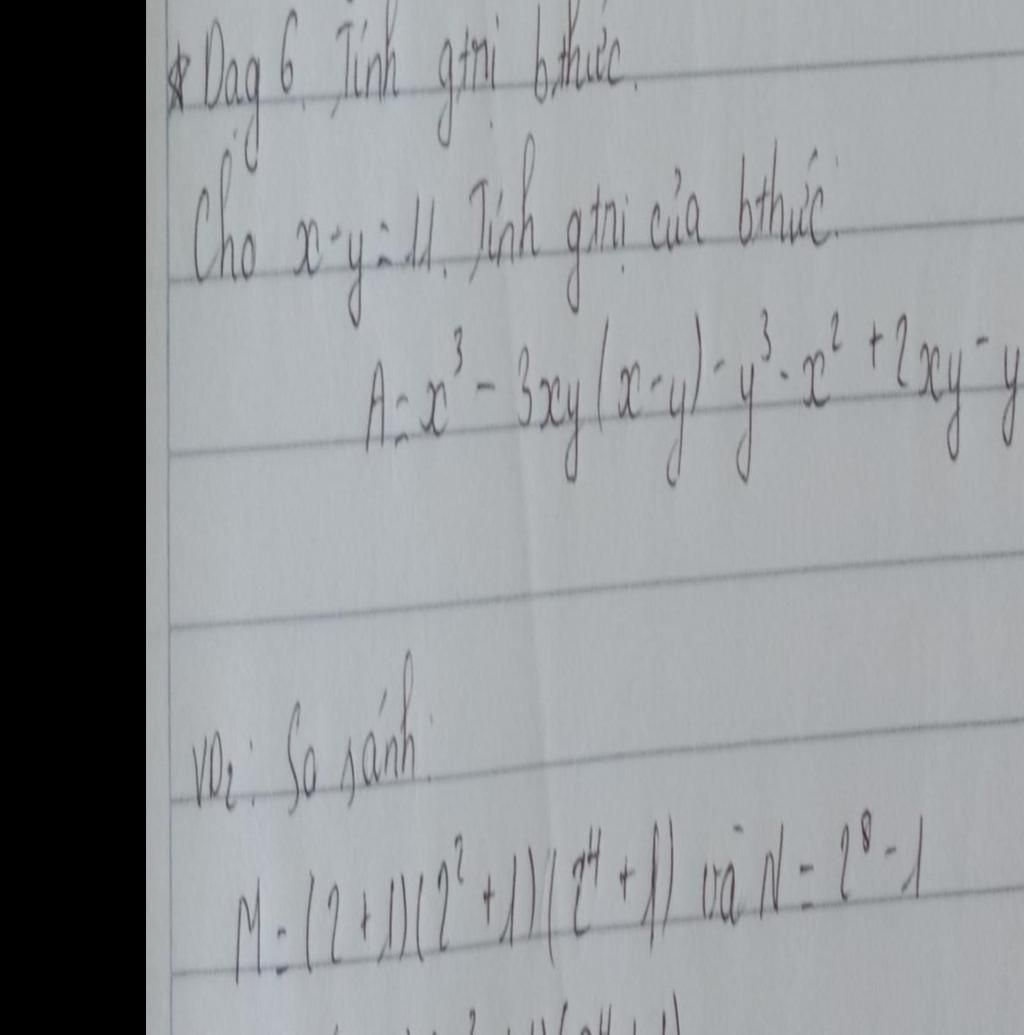 * Dạg 6. Tính gtrị bthức.
Cho x-y=11. Tính gtrị của bthức.
A = x³ - 3xy(x-y) - y³ - x² + 2xy - y
VD₂: So sánh.
M = (2+1)(2²+1)(2⁴+1) và N = 2⁸ - 1